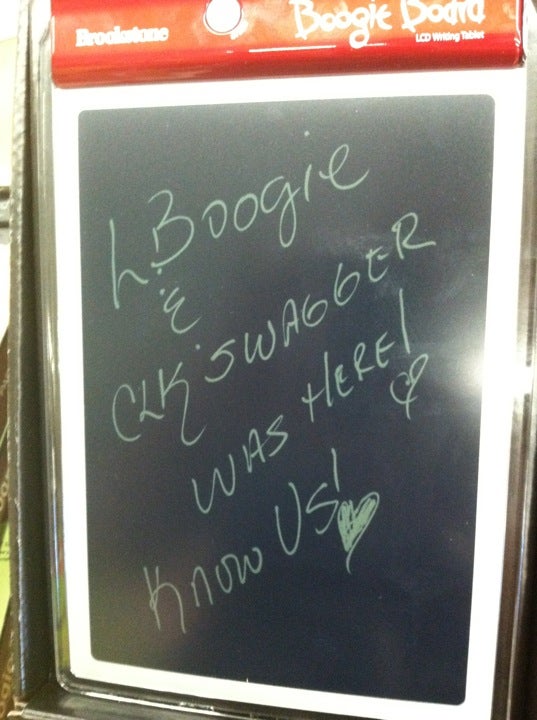 Brookstone
Boogie Board
LCD Writing Tablet
L Boogie
&
CLK SWAGGER
WAS HERE!
KNOW US!